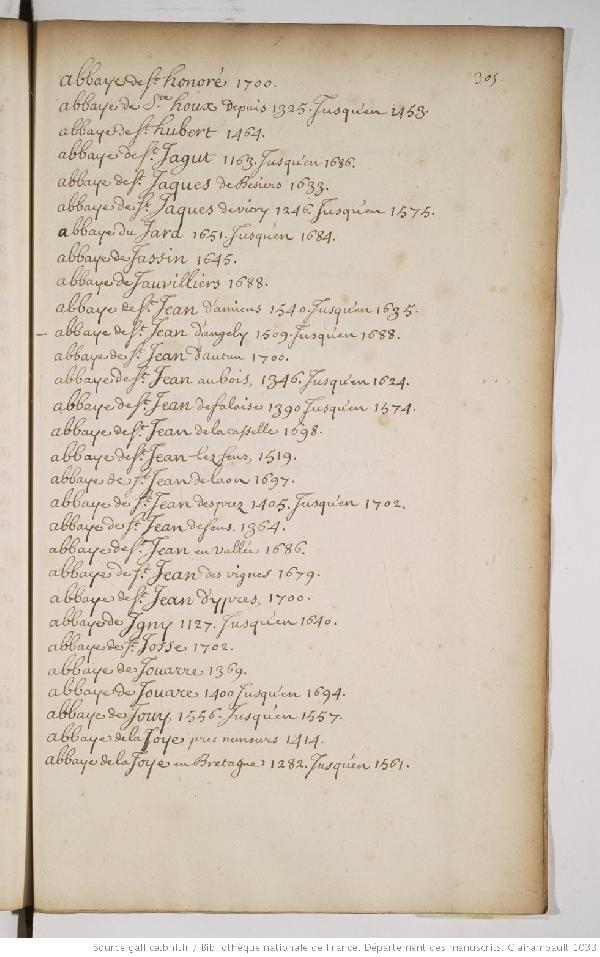 305
abbaye de St. honoré 1700.
abbaye de Ste. houx depuis 1325. Jusqu'en 1453.
abbaye de St. hubert 1464.
abbaye de St. Jagut 1163. Jusqu'en 1686.
abbaye de St. Jaques de Besiers 1633.
abbaye de St. Jaques de vitry 1246. Jusqu'en 1575.
abbaye du Jard 1651. Jusqu'en 1684.
abbaye de Jassin 1645.
abbaye de Jauvilliers 1688.
abbaye de St. Jean d'amiens 1540. Jusqu'en 1635.
abbaye de St. Jean d'angely 1509. Jusqu'en 1688.
abbaye de St. Jean d'autun 1700.
abbaye de St. Jean au bois, 1346. Jusqu'en 1624.
abbaye de St. Jean de falaise 1390 Jusqu'en 1574.
abbaye de St. Jean de la casselle 1698.
abbaye de St. Jean-lez-sens, 1519.
abbaye de St. Jean de laon 1697.
abbaye de St. Jean des prez 1405. Jusqu'en 1702.
abbaye de St. Jean de sens, 1364.
abbaye de St. Jean en vallée 1686.
abbaye de St. Jean des vignes 1679.
abbaye de St. Jean d'ypres, 1700.
abbaye de Igny 1127. Jusqu'en 1640.
abbaye de St. Josse 1702.
abbaye de Jouarre 1369.
abbaye de Jouare 1400 Jusqu'en 1694.
abbaye de Jouy, 1556. Jusqu'en 1557.
abbaye de la Joye pres nemours 1414.
abbaye de la Joye en Bretagne 1282. Jusqu'en 1561.
Source gallica.bnf.fr / Bibliothèque nationale de France. Département des manuscrits. Clairambault 1033